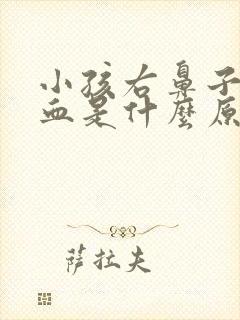 小孩右鼻子
血是什麼原
萨拉夫